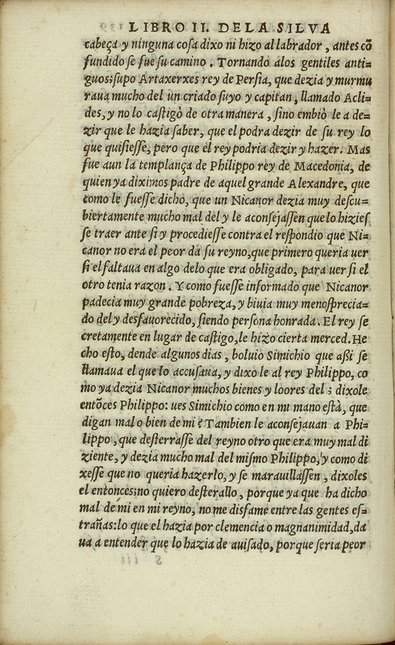 LIBRO II. DELA SILVA
cabeça y ninguna cosa dixo ni hizo al labrador, antes cõ
fundido se fue su camino. Tornando alos gentiles anti-
guos: supo Artaxerxes rey de Persia, que dezia y murmu
raua mucho del un criado suyo y capitan, llamado Acli-
des, y no lo castigò de otra manera, sino embiò le a de-
zir que le hazia saber, que el podra dezir de su rey lo
que quisiesse, pero que el rey podria dezir y hazer. Mas
fue aun la templança de Philippo rey de Macedonia, de
quien ya diximos padre de aquel grande Alexandre, que
como le fuesse dicho, que un Nicanor dezia muy descu-
biertamente mucho mal del y le aconsejassen que lo hizies
se traer ante si y procediesse contra el respondio que Ni-
canor no era el peor da su reyno, que primero queria uer
si el faltaua en algo delo que era obligado, para uer si el
otro tenia razon. Y como fuesse informado que Nicanor
padecia muy grande pobreza, y biuia muy menosprecia-
do del y desfauorecido, siendo persona honrada. El rey se
cretamente en lugar de castigo, le hizo cierta merced. He
cho esto, dende algunos dias, boluio Simichio que assi se
llamaua el que lo accusaua, y dixo le al rey Philippo, co
mo ya dezia Nicanor muchos bienes y loores del; dixole
entõces Philippo: ues Simichio como en mi mano està, que
digan mal o bien de mi? Tambien le aconsejauan a Phi-
lippo, que desterrasse del reyno otro que era muy mal di
ziente, y dezia mucho mal del mismo Philippo, y como di
xesse que no queria hazerlo, y se marauillassen, dixoles
el entonces: no quiero desterallo, porque ya que ha dicho
mal de mi en mi reyno, no me disfame entre las gentes es-
trañas: lo que el hazia por clemencia o magnanimidad, da
ua a entender que lo hazia de auisado, porque seria peor